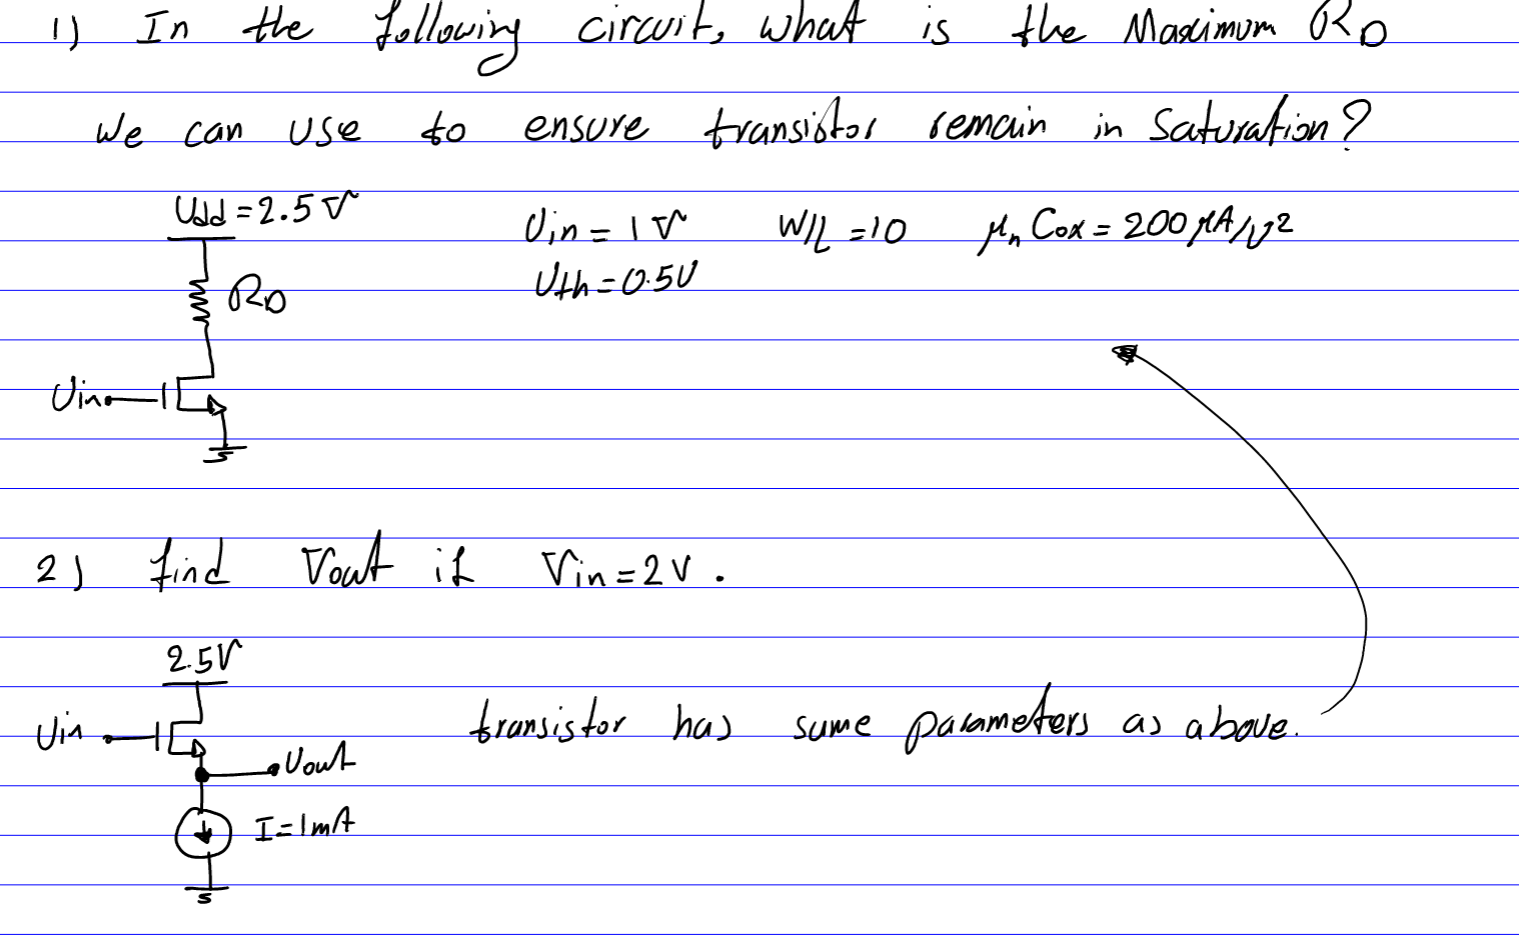 1) In the following circuit, what is the Maximum RD
we can use to ensure transistor remain in Saturation?
Vdd = 2.5 V
Vin = 1 V W/L = 10 μn Cox = 200 μA/V²
Vth = 0.5V
RD
Vin
2) find Vout if Vin = 2V .
2.5V
Vin
transistor has same parameters as above.
Vout
I = 1mA